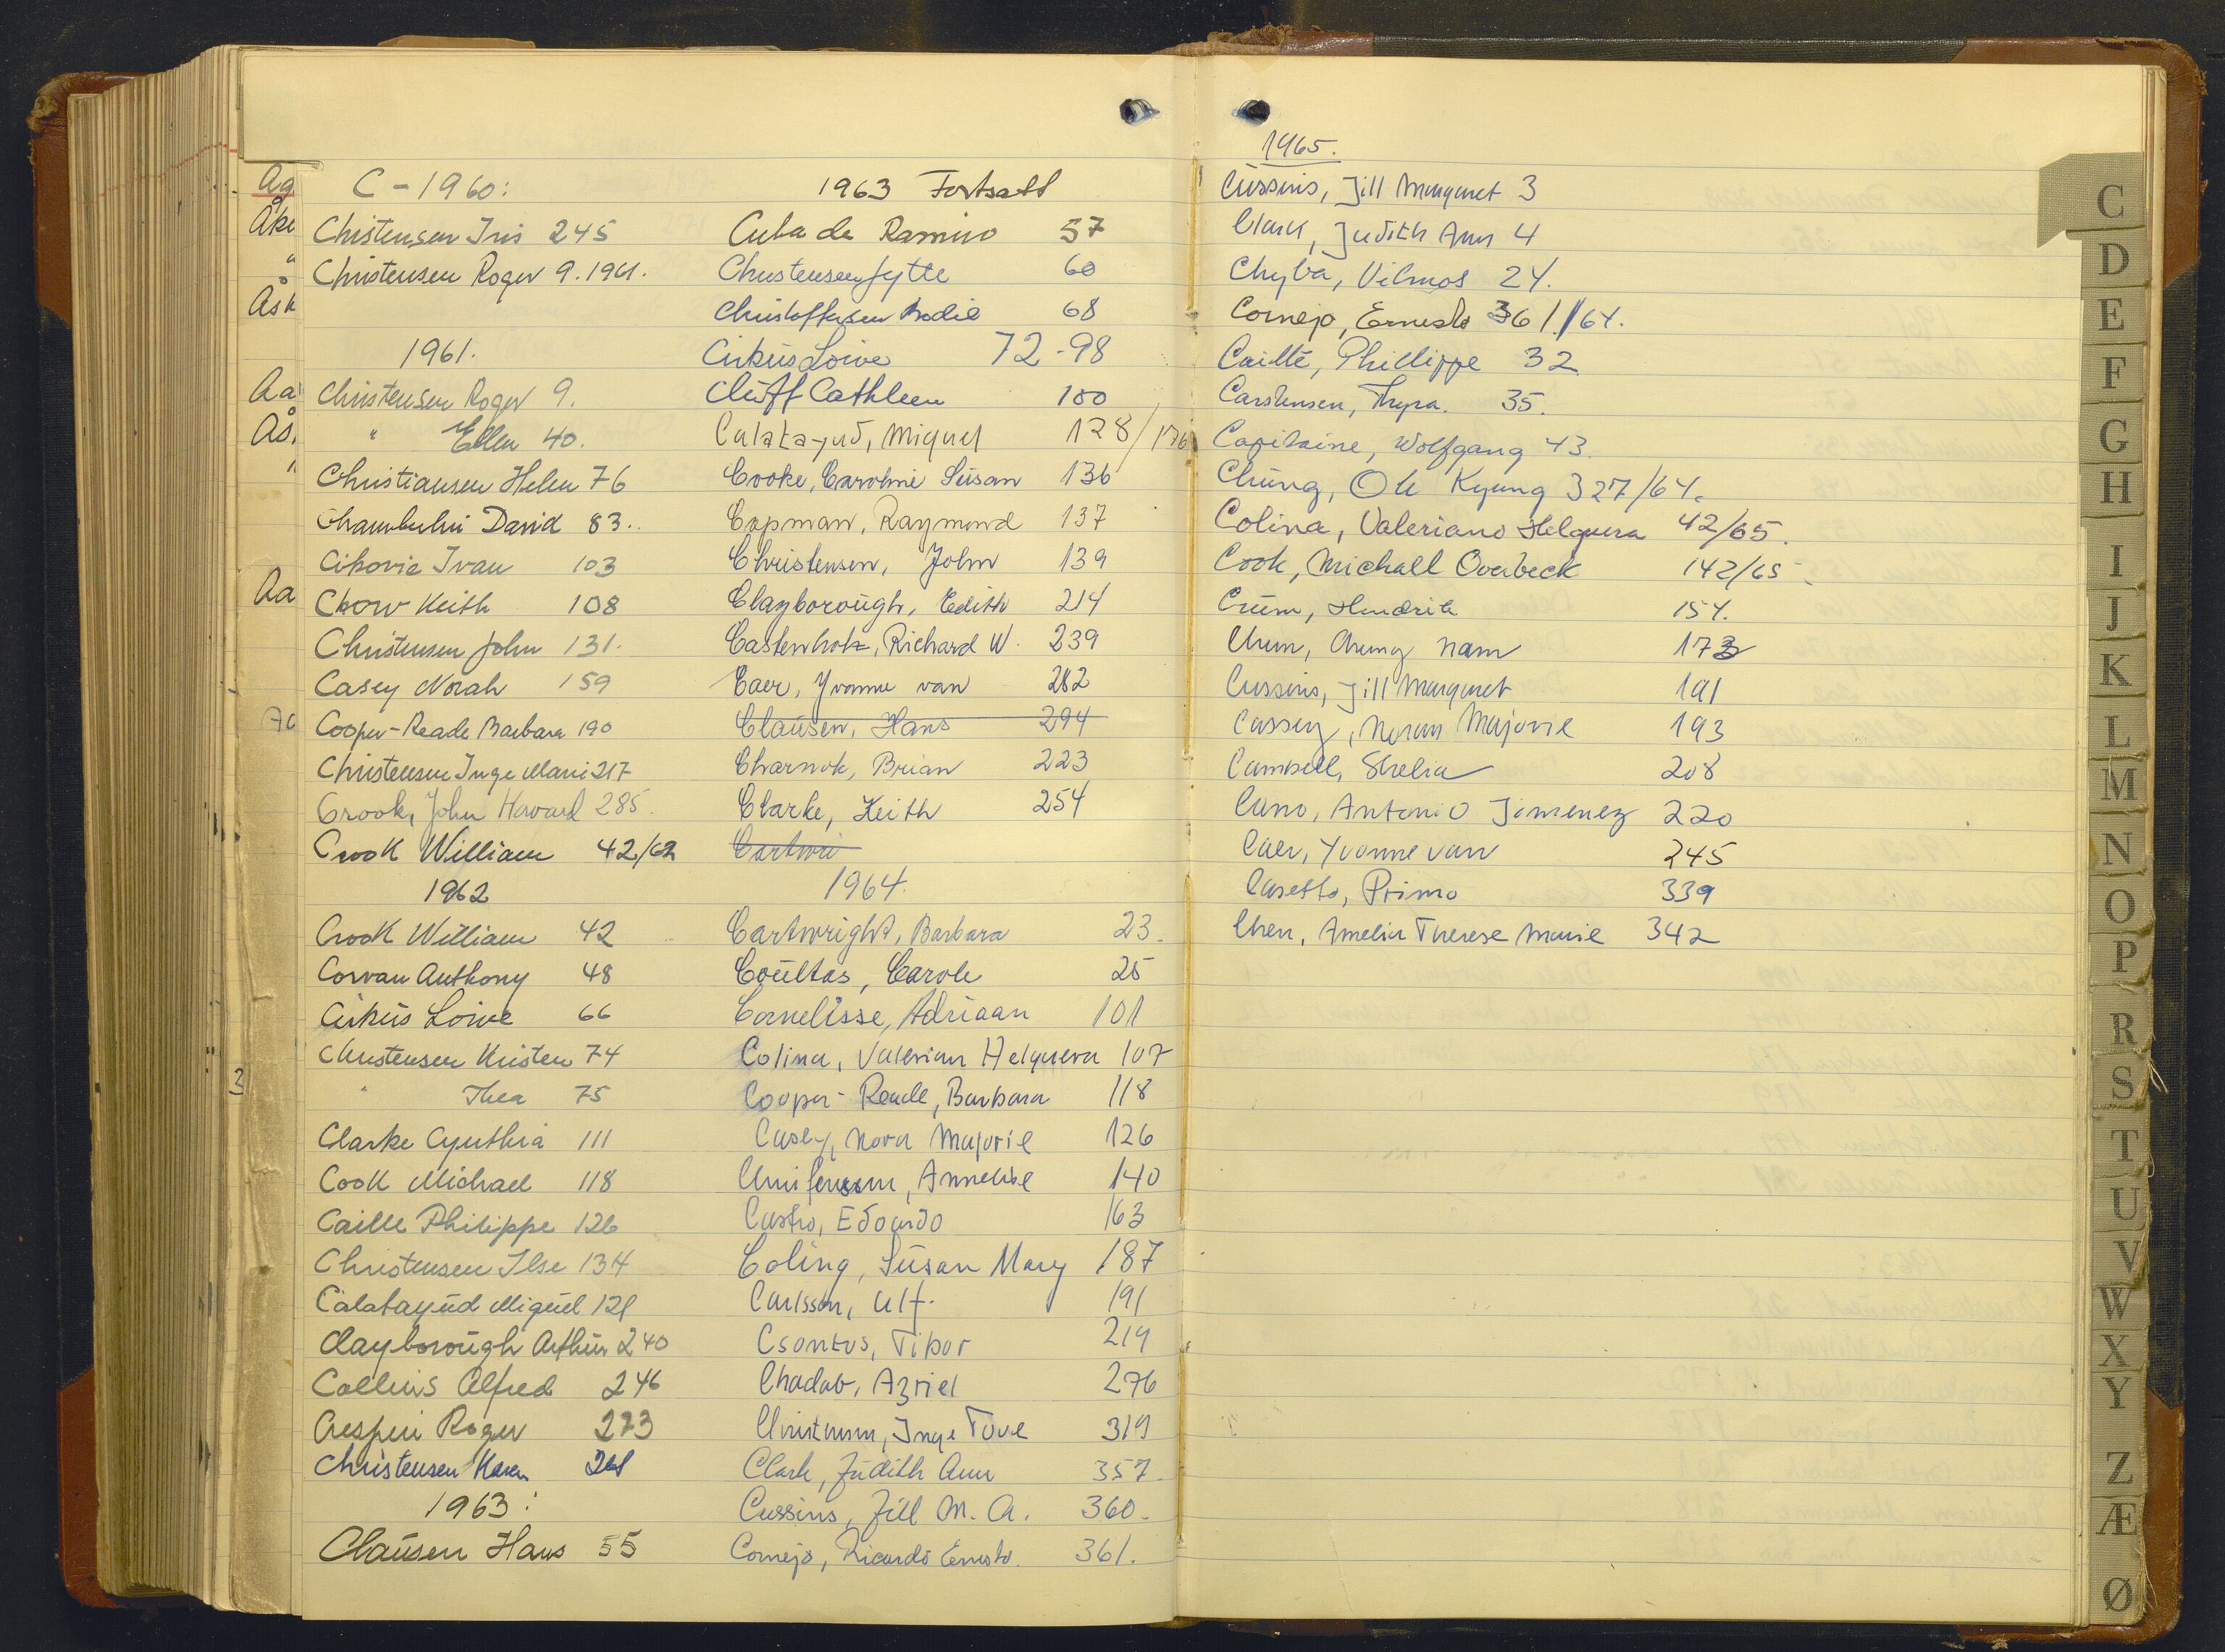 C - 1960:
Christensen Iris 245
Christensen Roger 9. 1961.
1961.
Christensen Roger 9.
" Ellen 40.
Christiansen Helen 76
David 83..
Cikovic Ivan 103
Chow Keith 108
Christensen John 131.
Casey Norah 159
Cooper-Reade Barbara 190
Christensen Inge Marie 217
Crook, John Havard 285.
Crook William 42/62
1962
Crook William 42
Corvan Anthony 48
Cirküs Loive 66
Christensen Kristen 74
" Thea 75
Clarke Cynthia 111
Cook Michael 118
Caille Philippe 126
Christensen Ilse 134
Calatayüd Migüel
Clayboroügh Arthür 240
Collins Alfred 246
Roger 273
Christensen Karen
1963:
Claüsen Hans 55
1963 Fortsatt
Cuba de Ramiro 57
Christensen Jytte 60
Christoffersen Bodil 68
Cirküs Loive 72-98
Cathleen 100
Calatayud, Miguel 128/176
Cooke, Caroline Süsan 136
Copman, Raymond 137
Christensen, John 139
Clayboroügh, Edith 214
Castenholz, Richard W. 239
Caer, Yvonne van 282
Claüsen, Hans 294
Charnok, Brian 223
Clarke, Keith 254
Cartwri
1964.
Cartwright, Barbara 23.
Coültas, Carole 25
Cornelisse, Adriaan 101
Colina, Valerian Helguera 107
Cooper-Reade, Barbara 118
Casey, Nora Majorie 126
Annelise 140
Castro, Edoardo 163
Coling, Süsan Mary 187
Carlsson, Ulf. 191
Csontos, Tibor 219
Chadab, Azriel 276
Christensen, Inge Tove 319
Clark, Jüdith Ann 357.
Cussins, Jill M. A. 360.
Cornejo, Ricardo Ernesto. 361.
1965.
Cüssins, Jill Margaret 3
Clark, Judith Ann 4
Chyba, Vilmos 24.
Cornejo, Ernesto 361/64.
Caillé, Phillippe 32
Carstensen, Thyra. 35.
Capitaine, Wolfgang 43.
Chüng, Ok Kyung 327/64.
Colina, Valeriano Helguera 42/65.
Cook, Michall Overbeck 142/65
Crüm, Hendrik 154.
Chun, Chung Nam 173
Cussins, Jill Margaret 191
Cassey, Noran Majorie 193
Cambell, Shelia 208
Cano, Antonio Jimenez 220
Caer, Yvonne van 245
Casetto, Primo 339
Chen, Amelia Therese Marie 342
Ag
Åke
"
Åsk
Aa
Ås.
"
Aa
3
C
D
E
F
G
H
I
J
K
L
M
N
O
P
R
S
T
U
V
W
X
Y
Z
Æ
Ø